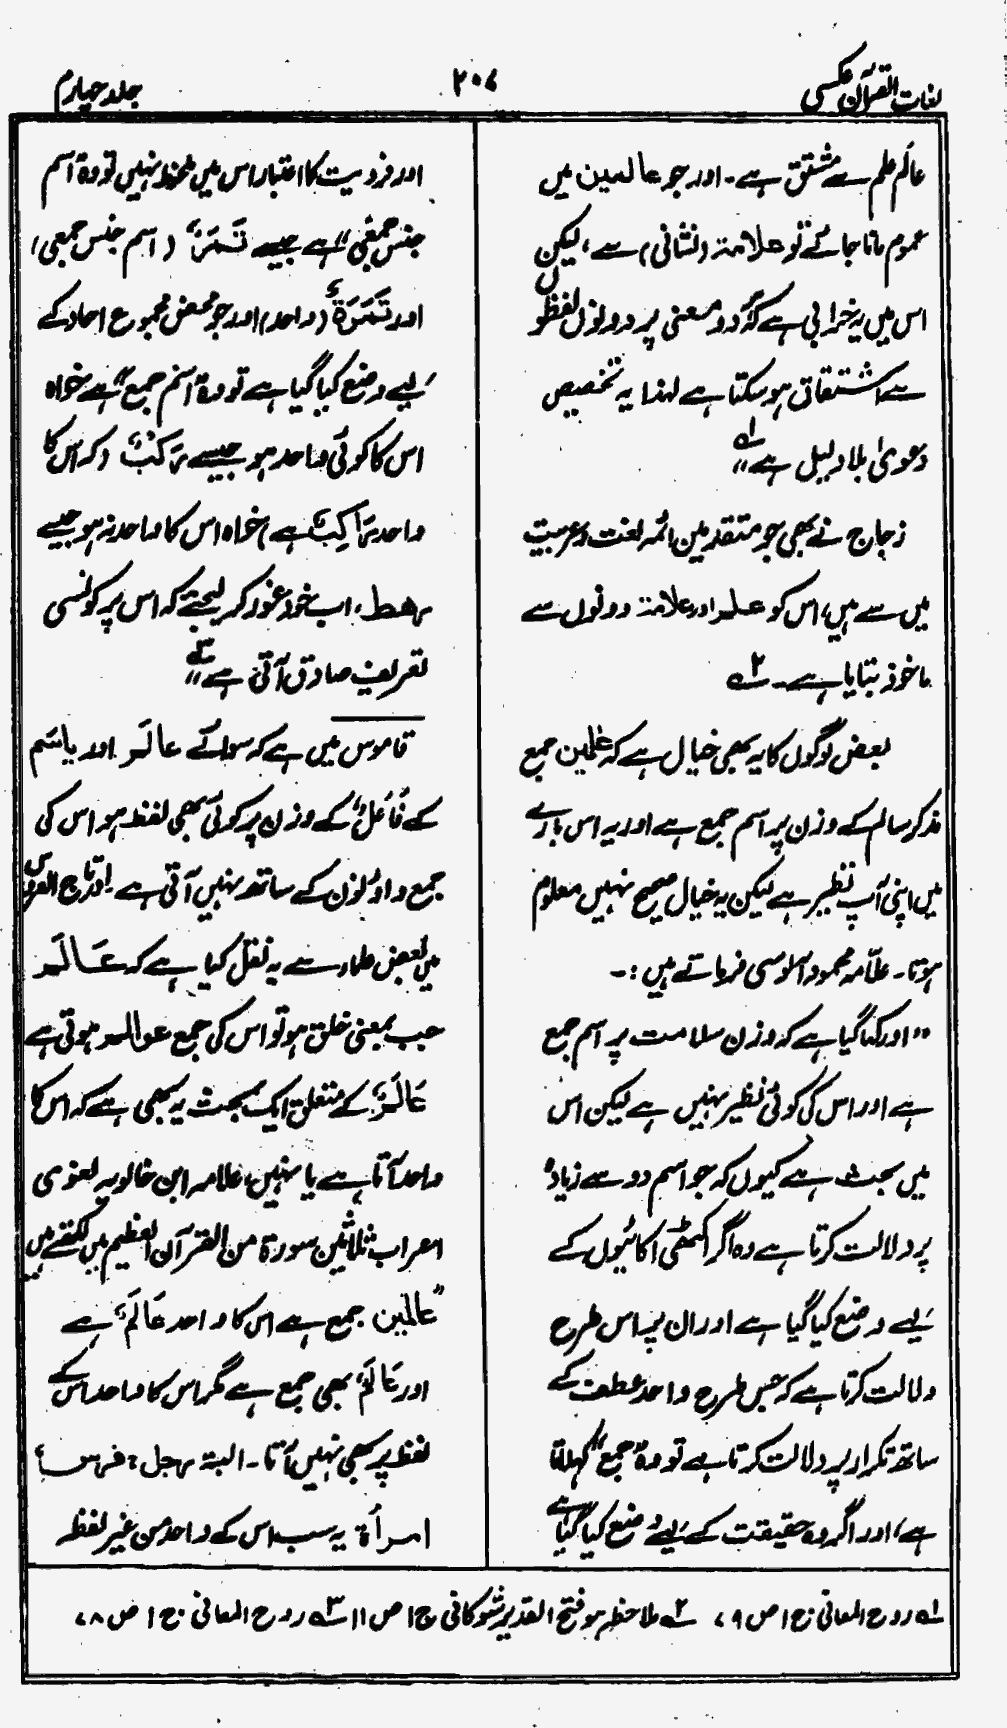 لغات القرآن عکسی
۲۰۷
جلد چہارم
عالَم علم سے مشتق ہے۔ اور جو عالمین میں
عموم مانا جائے تو علامۃ (نشانی) سے، لیکن
اس میں یہ خرابی ہے کہ دو معنی پر دونوں لفظوں
سے اشتقاق ہو سکتا ہے لہذا یہ تخصیص
دعویٰ بلا دلیل ہے"۱ـہ
زجاج نے بھی جو متقدمین ائمہ لغت و عربیت
میں سے ہیں، اس کو علم اور علامۃ دونوں سے
ماخوذ بتایا ہے۔ ۲ـہ
بعض لوگوں کا یہ بھی خیال ہے کہ عٰلمین جمع
مذکر سالم کے وزن پر اسم جمع ہے اور یہ اس بارے
میں اپنی آپ نظیر ہے لیکن یہ خیال صحیح نہیں معلوم
ہوتا۔ علّامہ محمود آلوسی فرماتے ہیں :۔
"اور کہا گیا ہے کہ وزن سلامت پر اسم جمع
ہے اور اس کی کوئی نظیر نہیں ہے لیکن اس
میں بحث ہے کیوں کہ جو اسم دو سے زیادہ
پر دلالت کرتا ہے وہ اگر اکٹھی اکائیوں کے
لیے وضع کیا گیا ہے اور ان پر اس طرح
دلالت کرتا ہے کہ جس طرح واحد عطف کے
ساتھ تکرار پر دلالت کرتا ہے تو وہ "جمع" کہلاتا
ہے، اور اگر وہ حقیقت کے لیے وضع کیا گیا ہے
اور فردیت کا اعتبار اس میں ملحوظ نہیں تو وہ "اسم
جنس جمعی" ہے جیسے تَمَرٌ (اسم جنس جمعی)
اور تَمَرَۃٌ (واحد) اور جو محض مجموع احاد کے
لیے وضع کیا گیا ہے تو وہ "اسم جمع" ہے خواہ
اس کا کوئی واحد ہو جیسے رَکْبٌ (کہ اس کا
واحد رَاکِبٌ ہے) خواہ اس کا واحد نہ ہو جیسے
رھط، اب خود غور کر لیجئے کہ اس پر کونسی
تعریف صادق آتی ہے"۳ـہ
قاموس میں ہے کہ سوائے عالَم اور یاسَم
کے فَاعَلٌ کے وزن پر کوئی بھی لفظ ہو اس کی
جمع واو نون کے ساتھ نہیں آتی ہے۔ اور تاج العروس
میں بعض علماء سے یہ نقل کیا ہے کہ عَالَم
جب بمعنی خلق ہو تو اس کی جمع عوالم ہوتی ہے
عَالَمٌ کے متعلق ایک بحث یہ بھی ہے کہ اس کا
واحد آتا ہے یا نہیں، علامہ ابن خالویہ لغوی
اعراب ثلاثین سورۃ من القرآن العظیم میں لکھتے ہیں
"عالمین جمع ہے اس کا واحد عَالَمٌ ہے
اور عَالَمٌ بھی جمع ہے مگر اس کا واحد اس کے
لفظ پر بھی نہیں آتا۔ البتہ رجل، فرس،
امرأۃ یہ سب اس کے واحد من غیر لفظہ
۱ـہ روح المعانی ج ۱ ص ۷۹ ۲ـہ ملاحظہ ہو فتح القدیر شوکانی ج ۱ ص ۱۱ ۳ـہ روح المعانی ج ۱ ص ۷۸